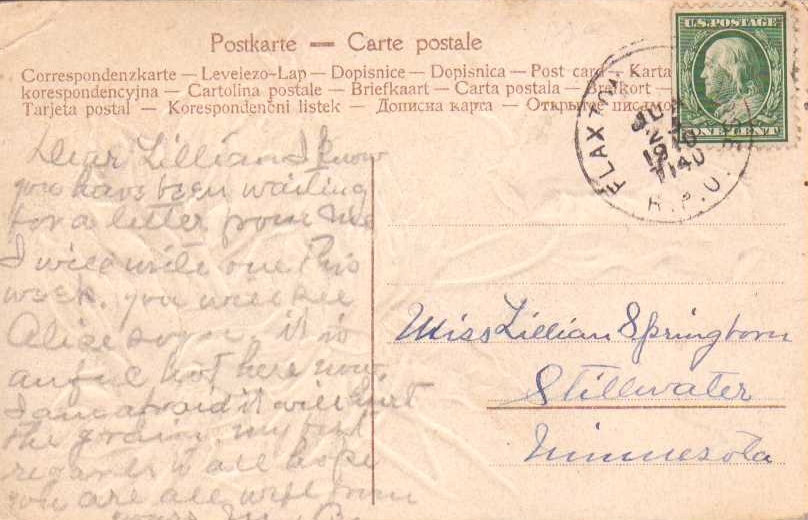 Postkarte — Carte postale
Correspondenzkarte — Levelezo-Lap — Dopisnice — Dopisnica — Post card — Karta
korespondencyjna — Cartolina postale — Briefkaart — Carta postala — Brefkort —
Tarjeta postal — Korespondenční listek — Дописна карта — Открытое письмо
U.S. POSTAGE
ONE CENT
FLAXTON
1910
R.P.O.
Dear Lillian I know
you have been waiting
for a letter from me
I will write one this
week. you will see
Alice soon. it is
awful hot here now.
I am afraid it will hurt
the grain. my best
regards to all hope
you are all well from
yours
Miss Lillian Springborn
Stillwater
Minnesota